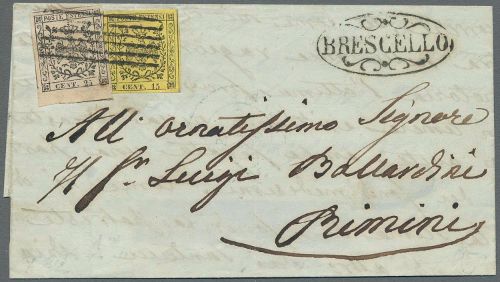 POSTE ESTENSI
CENT. 25
CENT. 15
BRESCELLO
All' ornatissimo Signore
Il Sr Luigi Ballardini
Rimini